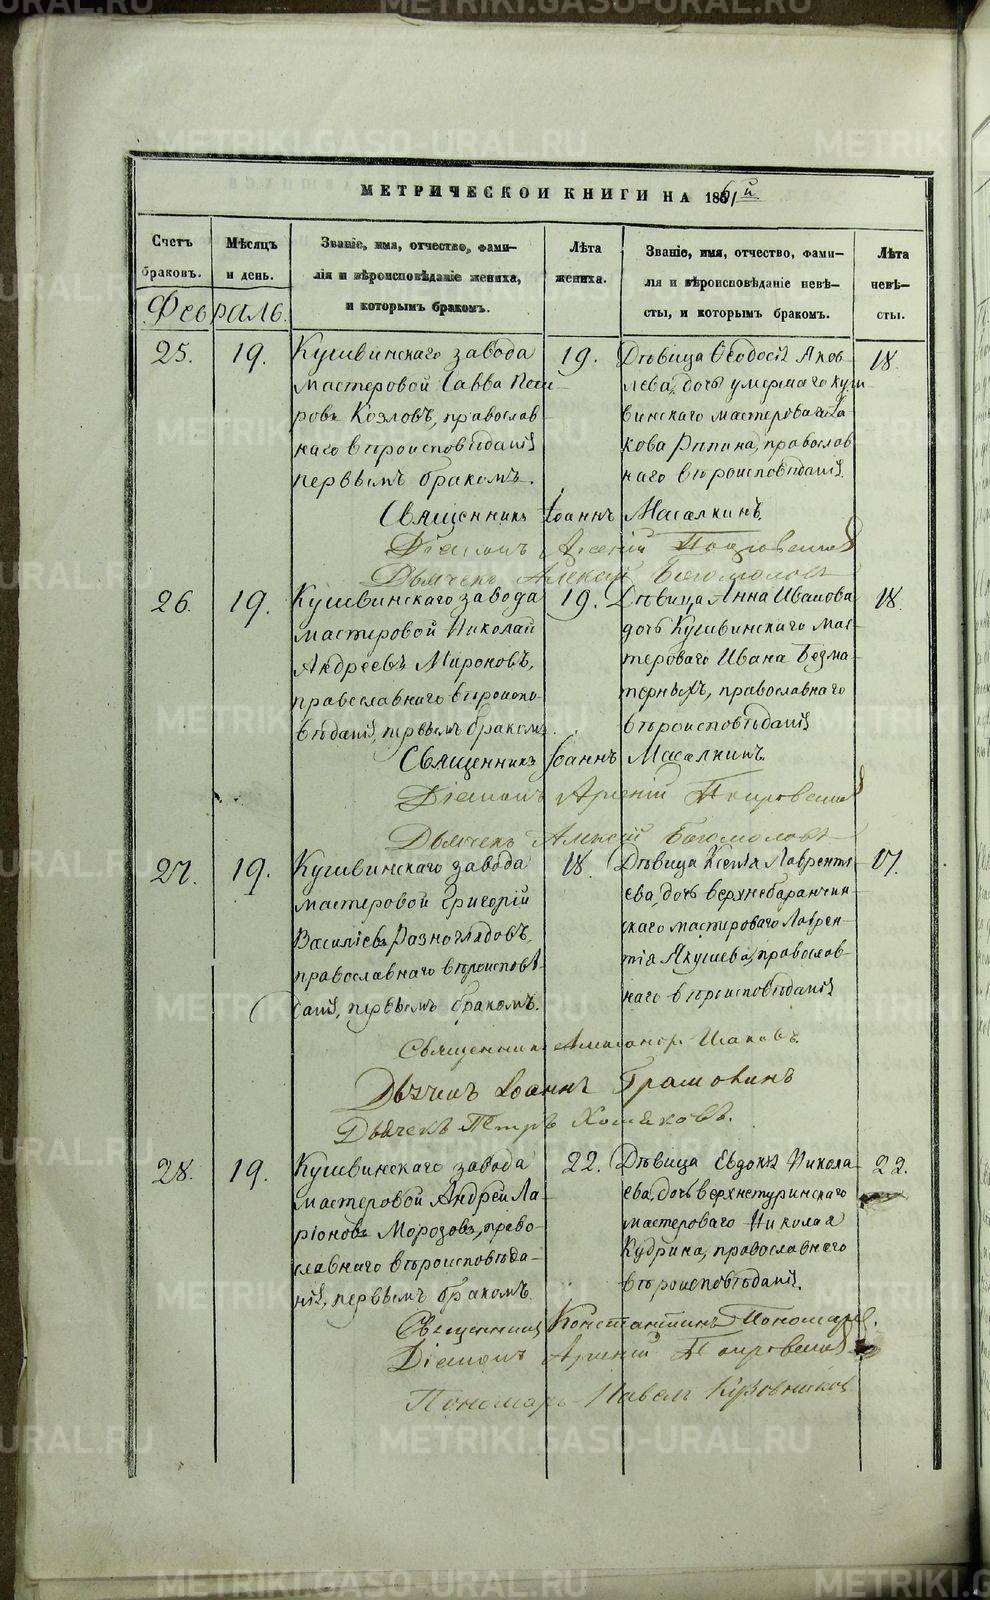 METRIKI.GASO-URAL.RU
МЕТРИЧЕСКОЙ КНИГИ НА 1861й
Счетъ браковъ.
Мѣсяцъ и день.
Званіе, имя, отчество, фами-
лія и вѣроисповѣданіе жениха,
и которымъ бракомъ.
Лѣта жениха.
Званіе, имя, отчество, фами-
лія и вѣроисповѣданіе невѣ-
сты, и которымъ бракомъ.
Лѣта невѣ-
сты.
Февраль.
25.
19.
Кушвинскаго завода
мастеровой Савва
ровъ Козловъ, православ
наго вѣроисповѣданія
первымъ бракомъ.
19.
Дѣвица Ѳеодосія Яков
лева, дочь умершаго куш
винскаго мастероваго Іа
кова Рипина, православ
наго вѣроисповѣданія.
18.
Священникъ Іоаннъ Масалкинъ.
Діаконъ Арсеній Покровский
Дьячекъ Алексѣй Богомоловъ
26.
19.
Кушвинскаго завода
мастеровой Николай
Андреевъ Мироновъ,
православнаго вѣроиспо-
вѣданія, первымъ бракомъ.
19.
Дѣвица Анна Иванова
дочь Кушвинскаго мас-
тероваго Ивана Безма-
терныхъ, православнаго
вѣроисповѣданія
18.
Священникъ Іоаннъ Масалкинъ.
Діаконъ Арсеній Покровский
Дьячекъ Алексѣй Богомоловъ
27.
19.
Кушвинскаго завода
мастеровой Григорій
Василіевъ Разноглядовъ,
православнаго вѣроисповѣ-
данія, первымъ бракомъ.
18.
Дѣвица Ксенія Лаврентi
ева, дочь верхнебаранчин-
скаго мастероваго Лаврен-
тія Якушева, православ-
наго вѣроисповѣданія
17.
Священникъ Александръ
Дьячекъ Іоаннъ
Дьячекъ Петръ Хомяковъ.
28.
19.
Кушвинскаго завода
мастеровой Андрей Ла-
ріоновъ Морозовъ, право-
славнаго вѣроисповѣда-
нія, первымъ бракомъ.
22.
Дѣвица Евдокія Никола-
ева, дочь верхнетуринскаго
мастероваго Николая
Кудрина, православнаго
вѣроисповѣданія.
22.
Священникъ Константинъ Пономаревъ.
Діаконъ Арсеній Покровский
Пономарь Павелъ